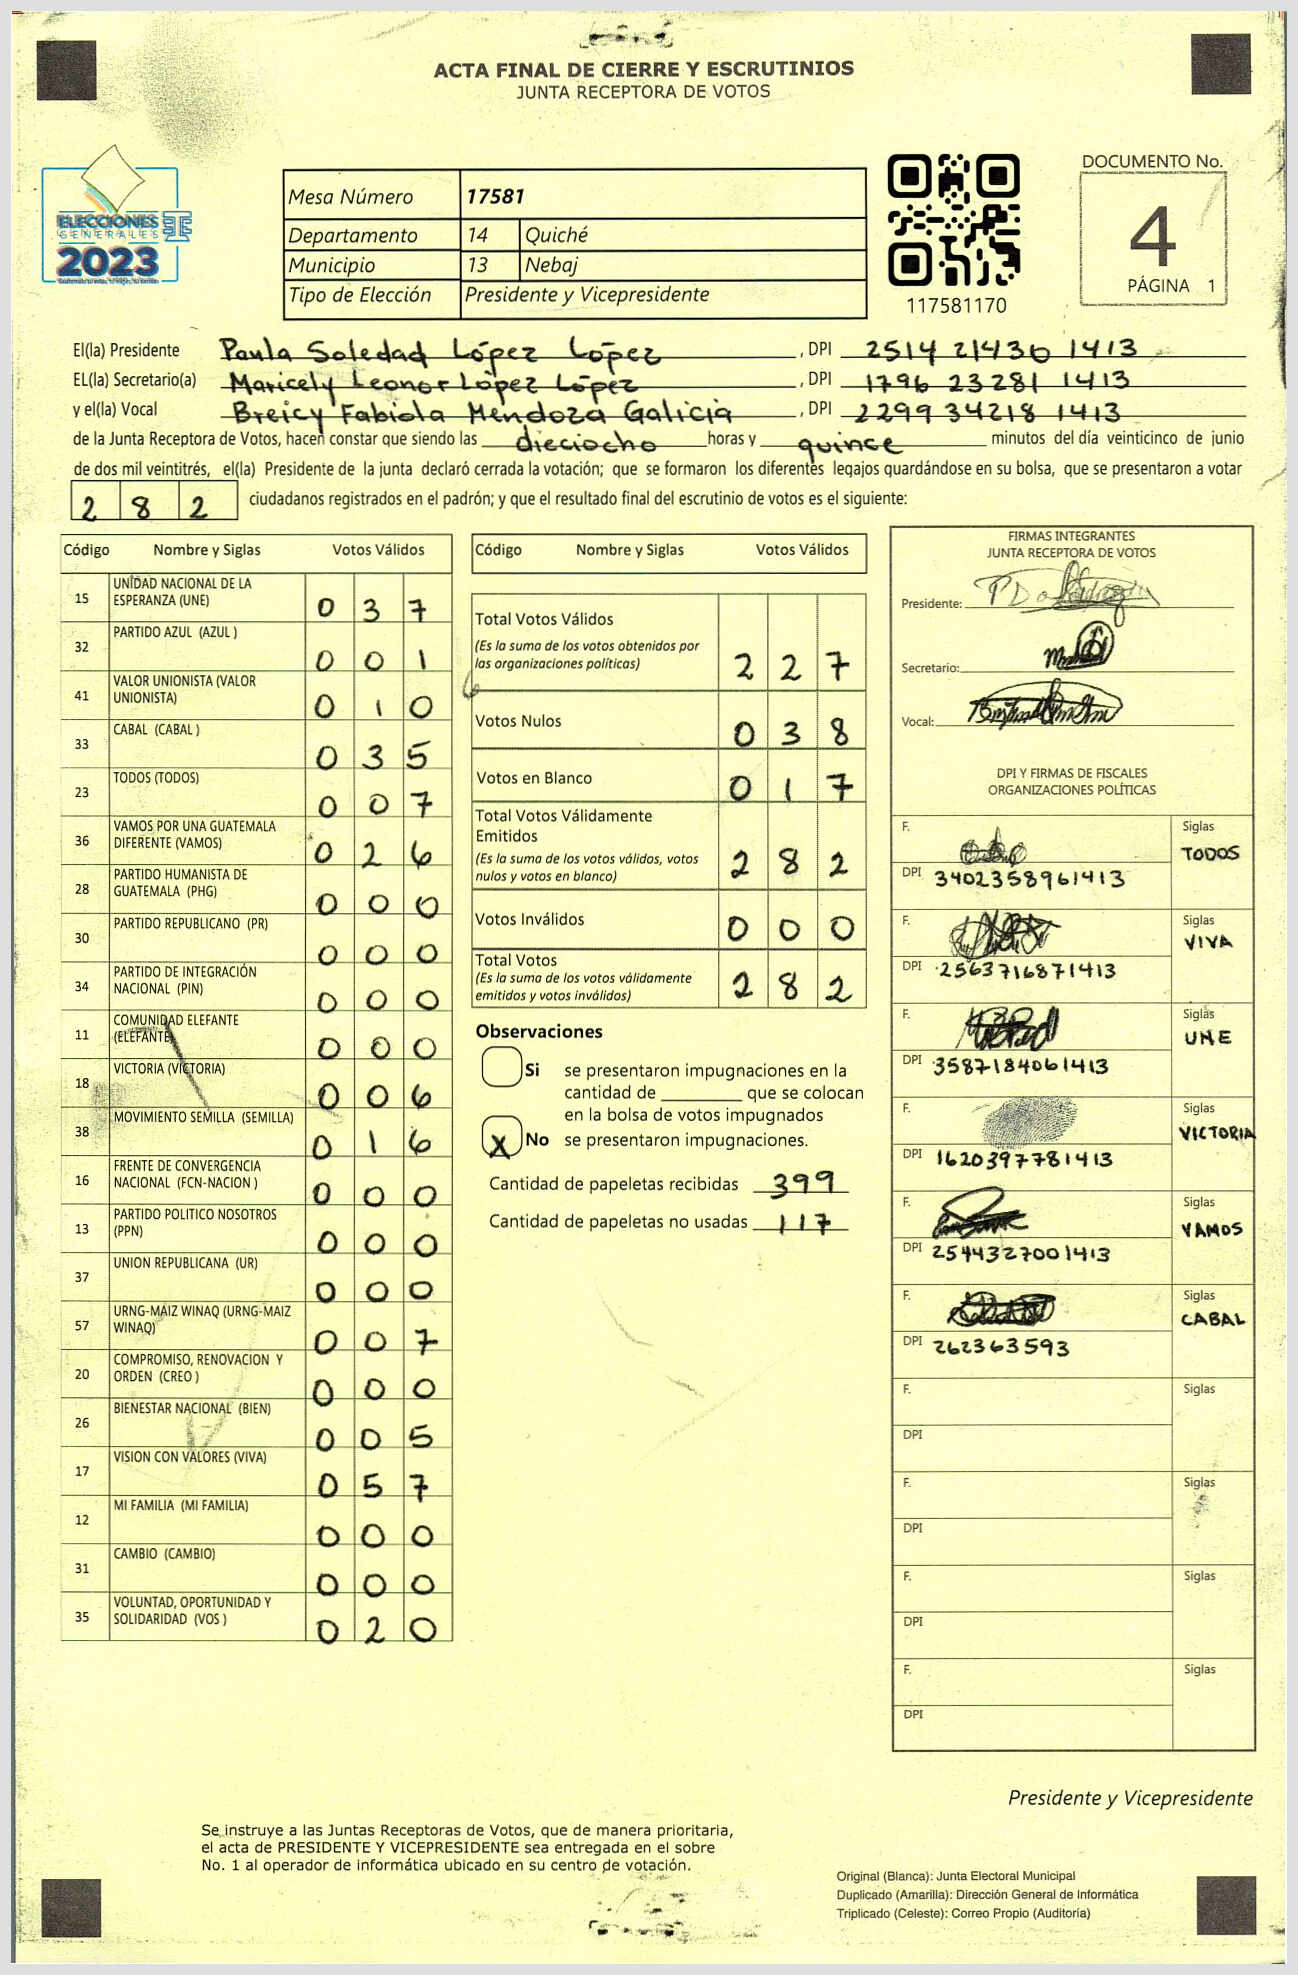 ACTA FINAL DE CIERRE Y ESCRUTINIOS
JUNTA RECEPTORA DE VOTOS
ELECCIONES
GENERALES
2023
TSE
Mesa Número 17581
Departamento 14 Quiché
Municipio 13 Nebaj
Tipo de Elección Presidente y Vicepresidente
117581170
DOCUMENTO No.
4
PÁGINA 1
El(la) Presidente Paula Soledad López López , DPI 2514 21430 1413
EL(la) Secretario(a) Maricely Leonor López López , DPI 1796 23281 1413
y el(la) Vocal Breicy Fabiola Mendoza Galicia , DPI 2299 34218 1413
de la Junta Receptora de Votos, hacen constar que siendo las dieciocho horas y quince minutos del día veinticinco de junio
de dos mil veintitrés, el(la) Presidente de la junta declaró cerrada la votación; que se formaron los diferentes legajos quardándose en su bolsa, que se presentaron a votar
2 8 2 ciudadanos registrados en el padrón; y que el resultado final del escrutinio de votos es el siguiente:
Código Nombre y Siglas Votos Válidos
15 UNIDAD NACIONAL DE LA ESPERANZA (UNE) 0 3 7
32 PARTIDO AZUL (AZUL ) 0 0 1
41 VALOR UNIONISTA (VALOR UNIONISTA) 0 1 0
33 CABAL (CABAL ) 0 3 5
23 TODOS (TODOS) 0 0 7
36 VAMOS POR UNA GUATEMALA DIFERENTE (VAMOS) 0 2 6
28 PARTIDO HUMANISTA DE GUATEMALA (PHG) 0 0 0
30 PARTIDO REPUBLICANO (PR) 0 0 0
34 PARTIDO DE INTEGRACIÓN NACIONAL (PIN) 0 0 0
11 COMUNIDAD ELEFANTE (ELEFANTE) 0 0 0
18 VICTORIA (VICTORIA) 0 0 6
38 MOVIMIENTO SEMILLA (SEMILLA) 0 1 6
16 FRENTE DE CONVERGENCIA NACIONAL (FCN-NACION ) 0 0 0
13 PARTIDO POLITICO NOSOTROS (PPN) 0 0 0
37 UNION REPUBLICANA (UR) 0 0 0
57 URNG-MAIZ WINAQ (URNG-MAIZ WINAQ) 0 0 7
20 COMPROMISO, RENOVACION Y ORDEN (CREO ) 0 0 0
26 BIENESTAR NACIONAL (BIEN) 0 0 5
17 VISION CON VALORES (VIVA) 0 5 7
12 MI FAMILIA (MI FAMILIA) 0 0 0
31 CAMBIO (CAMBIO) 0 0 0
35 VOLUNTAD, OPORTUNIDAD Y SOLIDARIDAD (VOS ) 0 2 0
Código Nombre y Siglas Votos Válidos
Total Votos Válidos
(Es la suma de los votos obtenidos por
las organizaciones políticas) 2 2 7
Votos Nulos 0 3 8
Votos en Blanco 0 1 7
Total Votos Válidamente
Emitidos
(Es la suma de los votos válidos, votos
nulos y votos en blanco) 2 8 2
Votos Inválidos 0 0 0
Total Votos
(Es la suma de los votos válidamente
emitidos y votos inválidos) 2 8 2
Observaciones
Si se presentaron impugnaciones en la
cantidad de ________ que se colocan
en la bolsa de votos impugnados
X No se presentaron impugnaciones.
Cantidad de papeletas recibidas 399
Cantidad de papeletas no usadas 117
FIRMAS INTEGRANTES
JUNTA RECEPTORA DE VOTOS
Presidente:
Secretario:
Vocal:
DPI Y FIRMAS DE FISCALES
ORGANIZACIONES POLÍTICAS
F. Siglas
TODOS
DPI 3402358961413
F. Siglas
VIVA
DPI 2563716871413
F. Siglas
UNE
DPI 3587184061413
F. Siglas
VICTORIA
DPI 1620397781413
F. Siglas
VAMOS
DPI 2544327001413
F. Siglas
CABAL
DPI 262363593
F. Siglas
DPI
F. Siglas
DPI
F. Siglas
DPI
F. Siglas
DPI
Presidente y Vicepresidente
Se instruye a las Juntas Receptoras de Votos, que de manera prioritaria,
el acta de PRESIDENTE Y VICEPRESIDENTE sea entregada en el sobre
No. 1 al operador de informática ubicado en su centro de votación.
Original (Blanca): Junta Electoral Municipal
Duplicado (Amarilla): Dirección General de Informática
Triplicado (Celeste): Correo Propio (Auditoría)